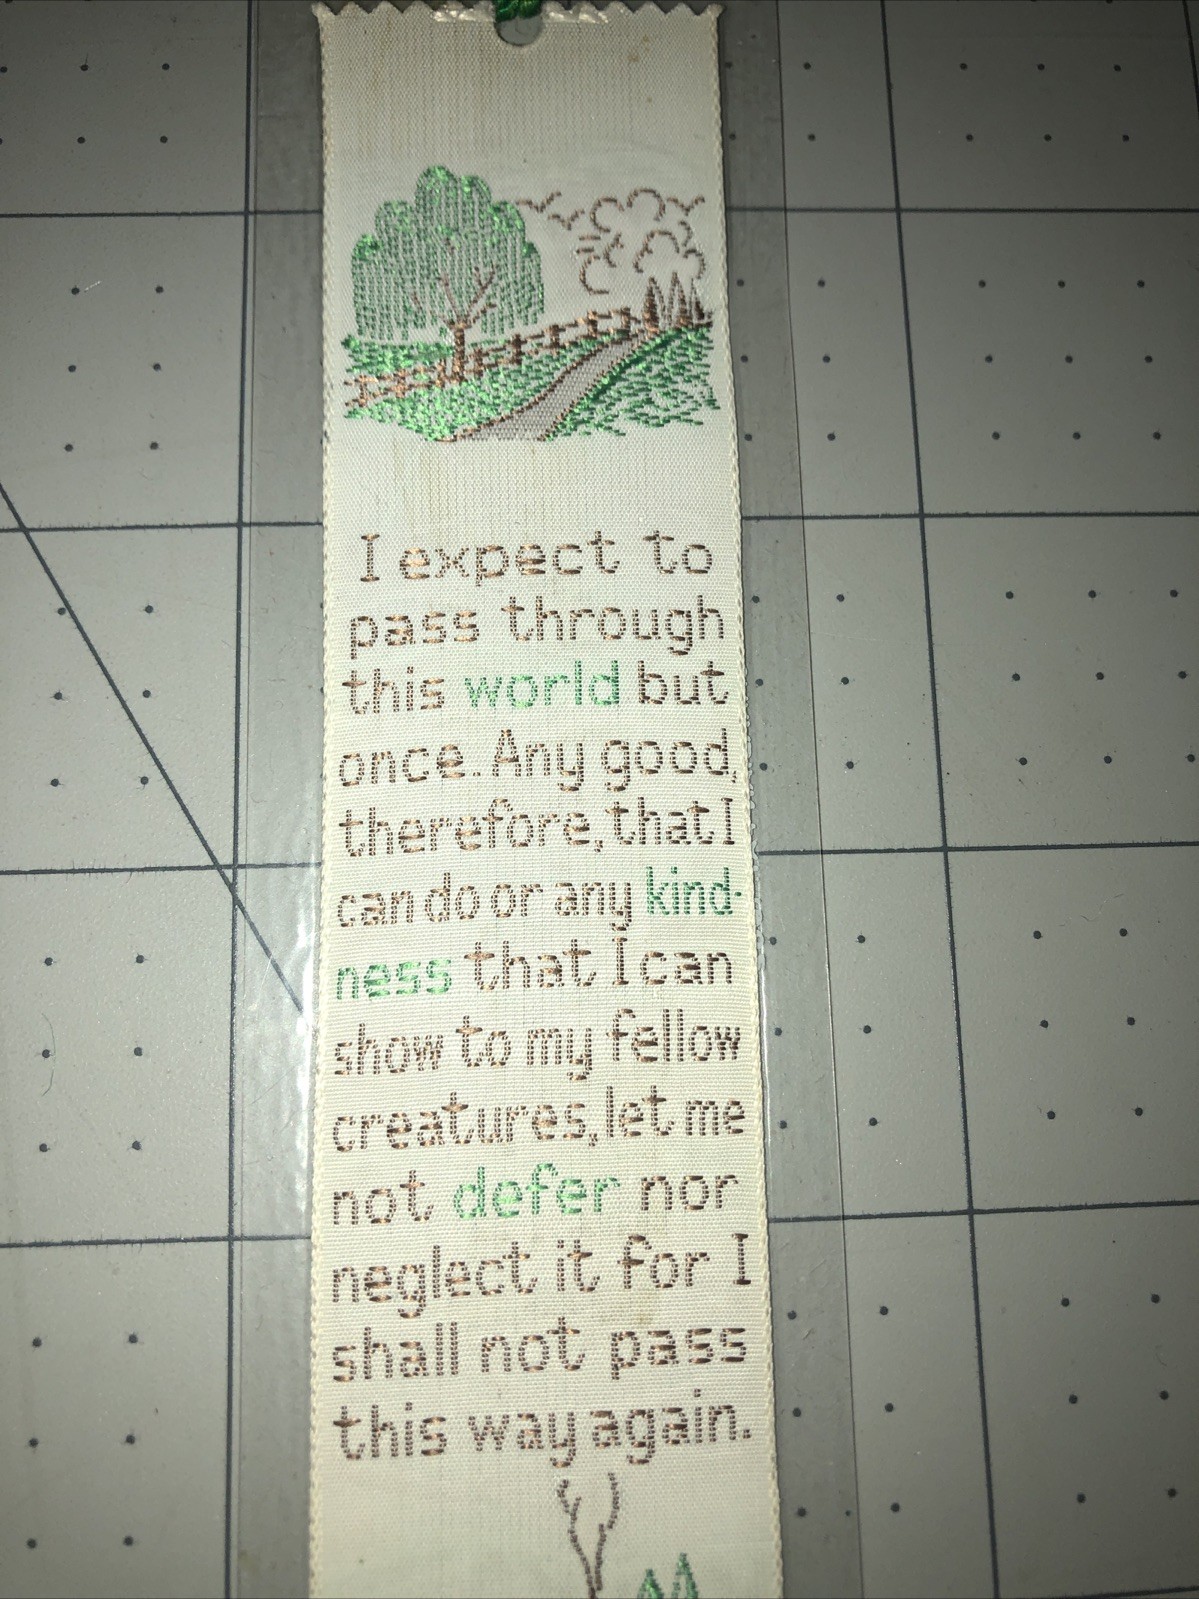 I expect to
pass through
this world but
once. Any good,
therefore, that I
can do or any kind-
ness that I can
show to my fellow
creatures, let me
not defer nor
neglect it for I
shall not pass
this way again.